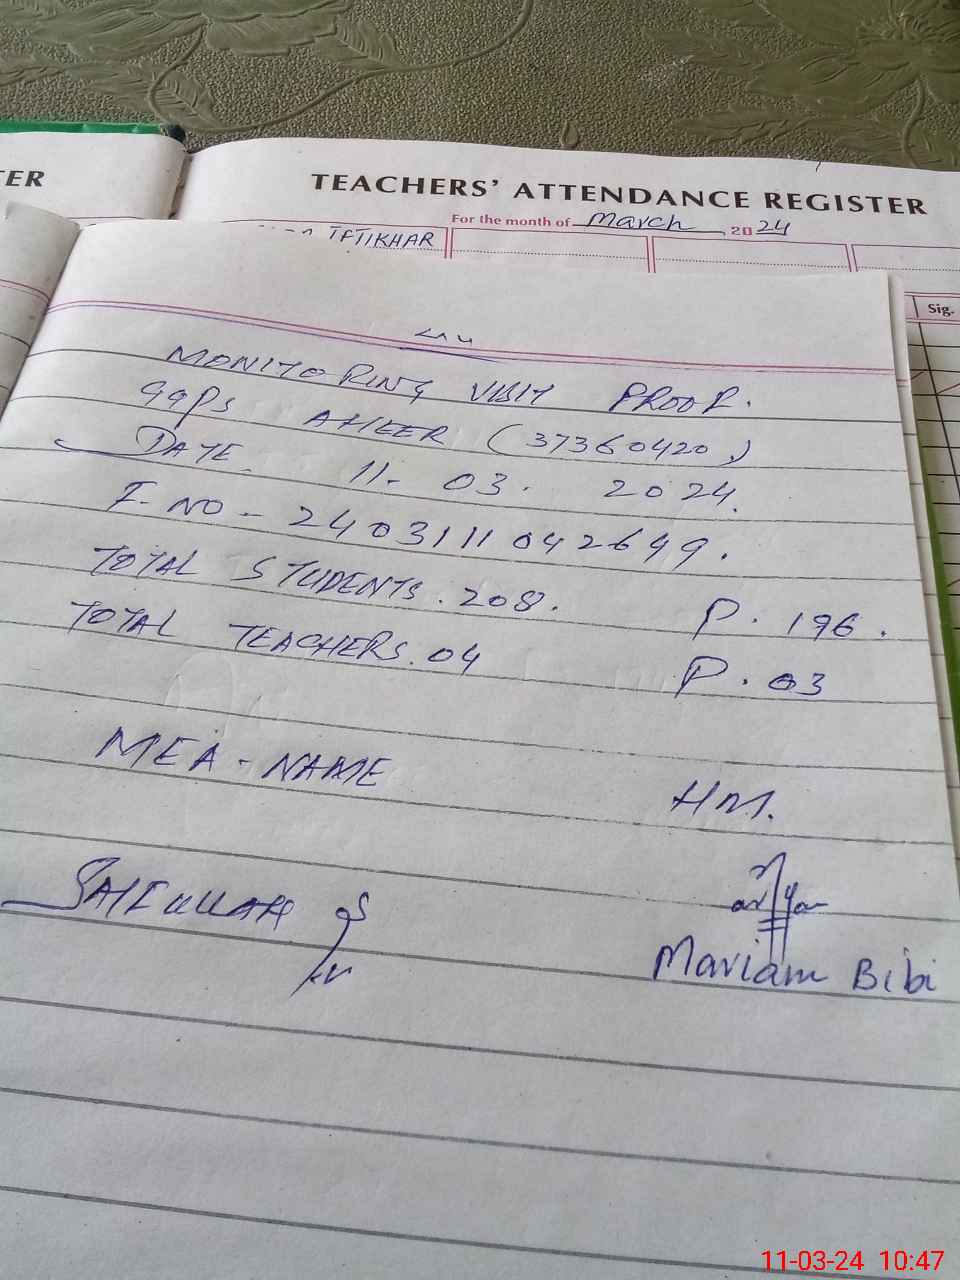 TER
TEACHERS' ATTENDANCE REGISTER
For the month of March, 2024
IFTIKHAR
Sig.
MONITORING VISIT PROOF.
GGPS AHEER (37360420)
DATE 11. 03. 2024.
F-NO - 2403111042699.
TOTAL STUDENTS. 208. P. 196.
TOTAL TEACHERS. 04 P. 03
MEA - NAME HM.
SAIFULLAH
Maryam
Mariam Bibi
11-03-24 10:47